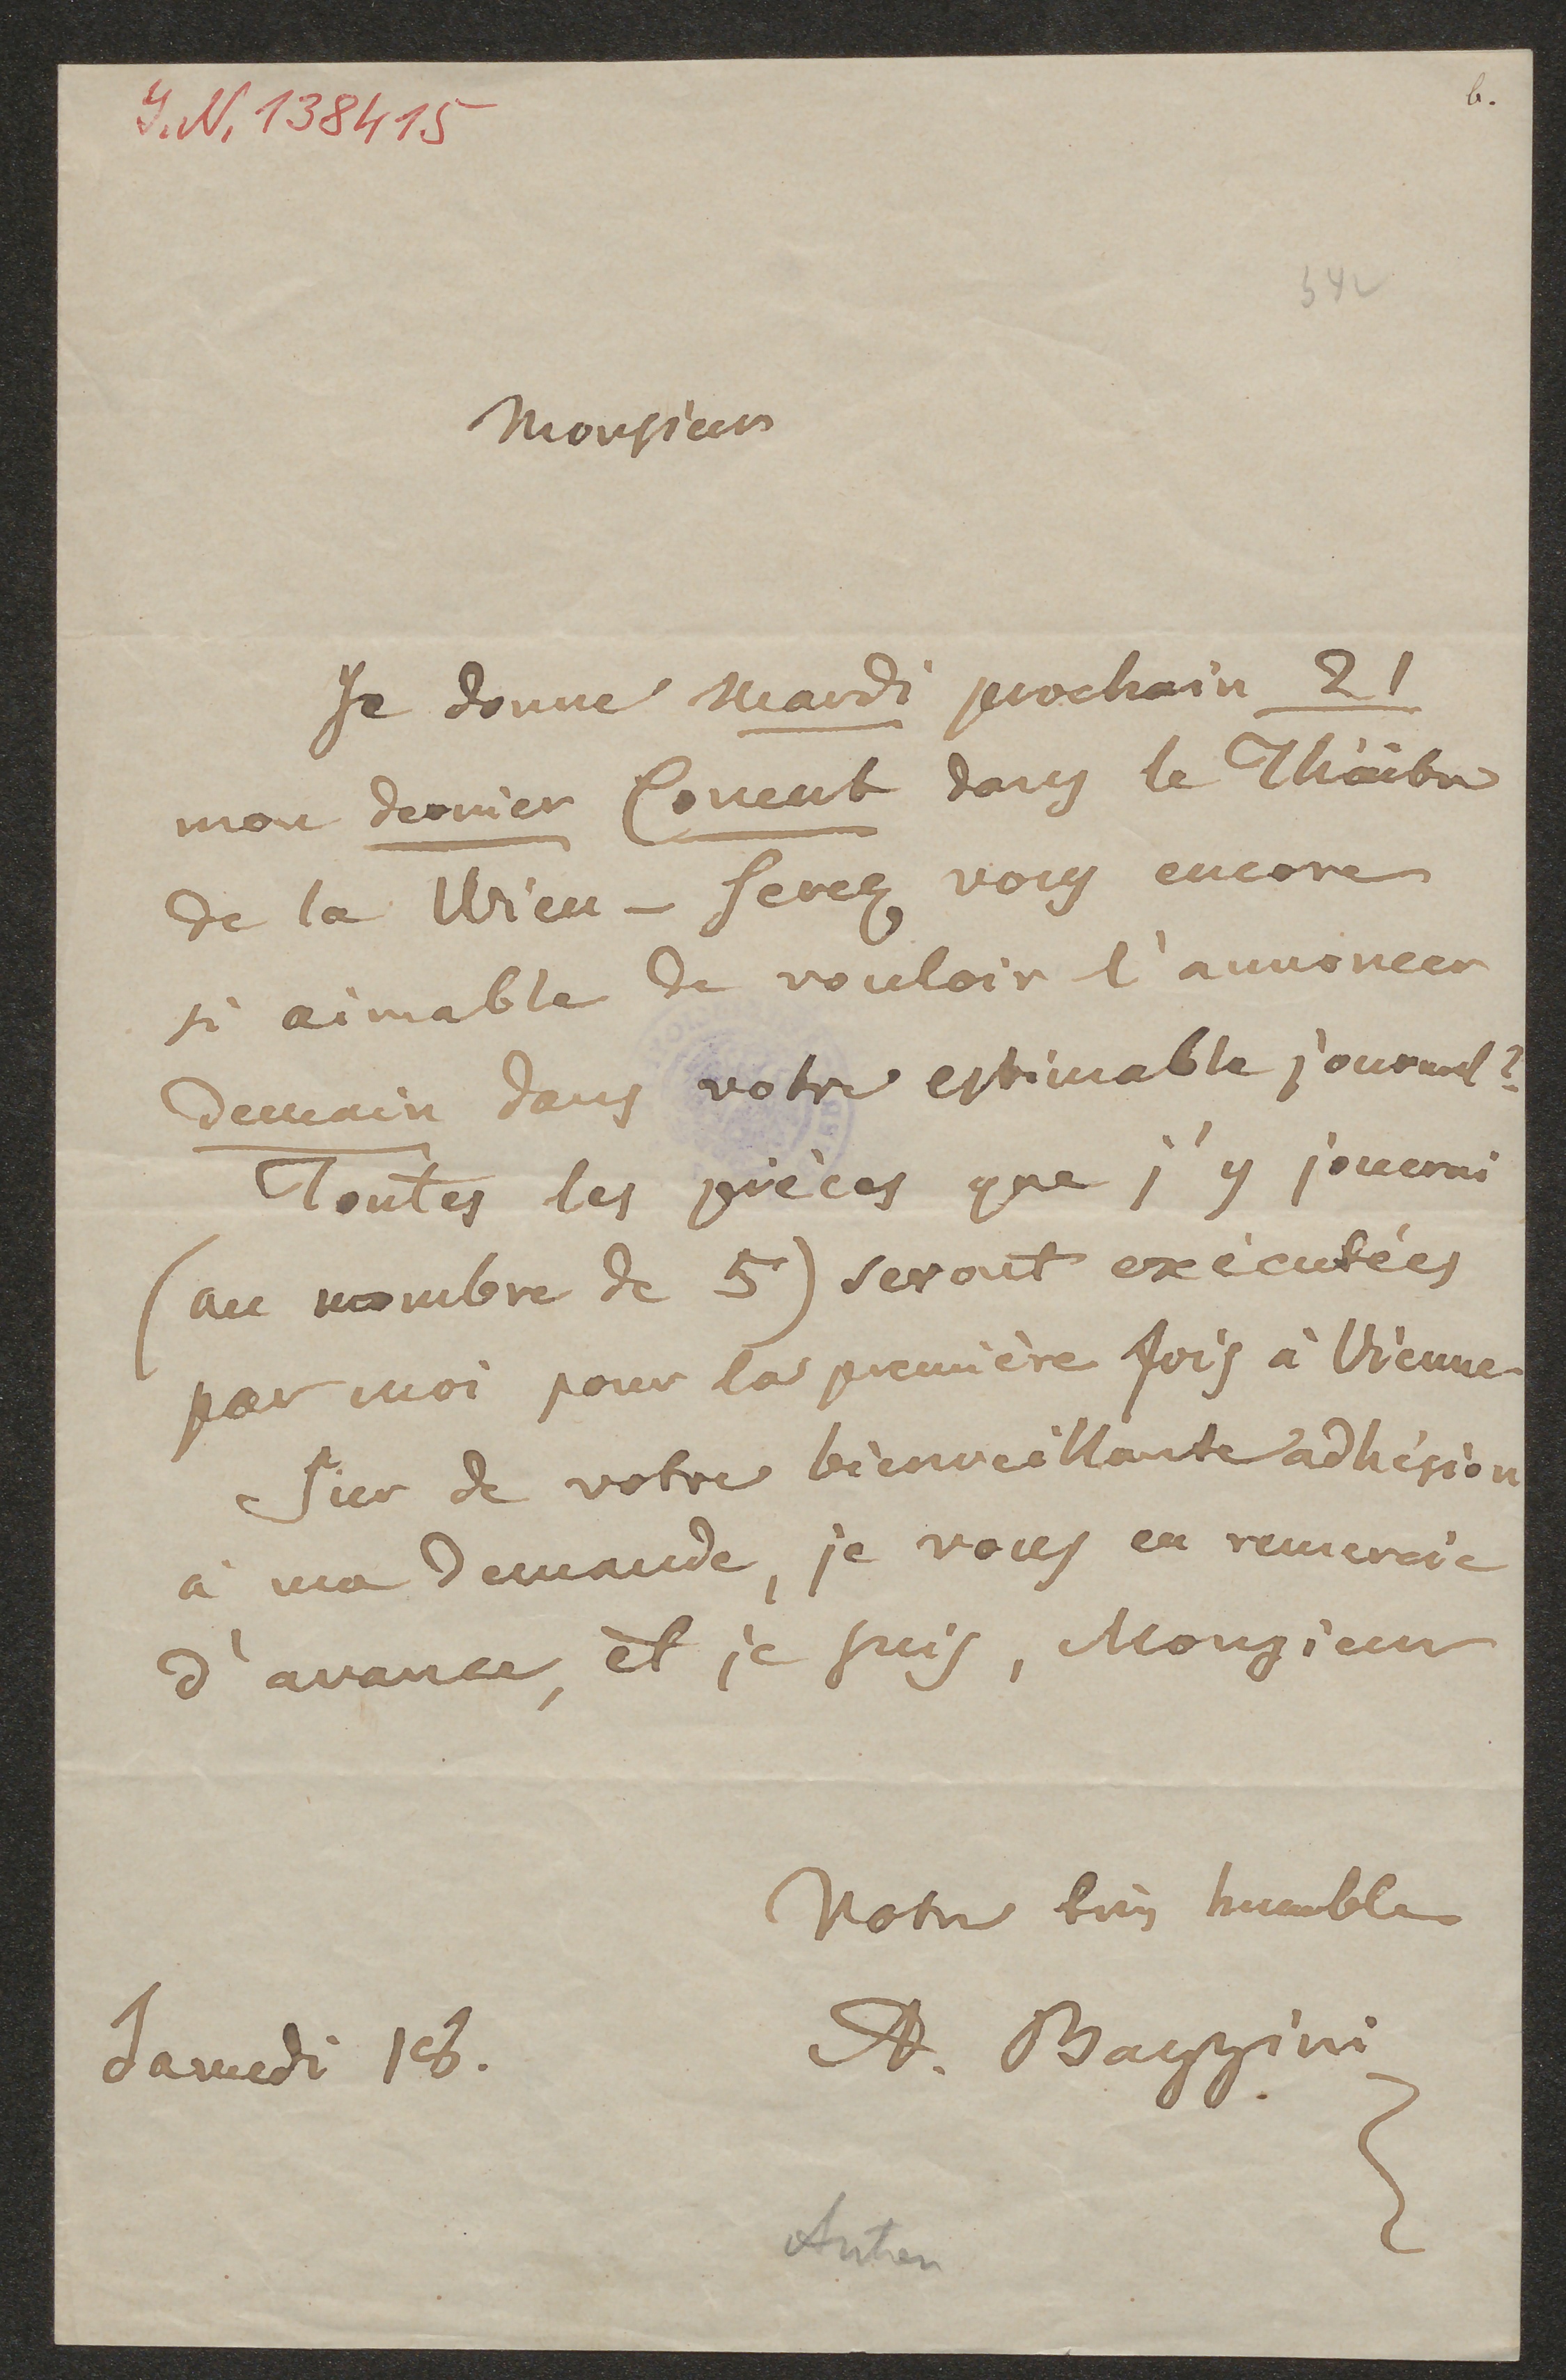 J.N. 138415
b.
Monsieur
Je donne Mardi prochain 21
mon dernier Concert dans le Théâtre
de la Wien - Serez vous encore
si aimable de vouloir l'annoncer
Demain dans votre estimable journal?
Toutes les pièces que j'y jouerai
(au nombre de 5) seront exécutées
par moi pour la première fois à Vienne
Sur de votre bienveillante adhésion
à ma Demande, je vous en remercie
d'avance, et je suis, Monsieur
Votre très humble
A. Bazzini
Samedi 18.